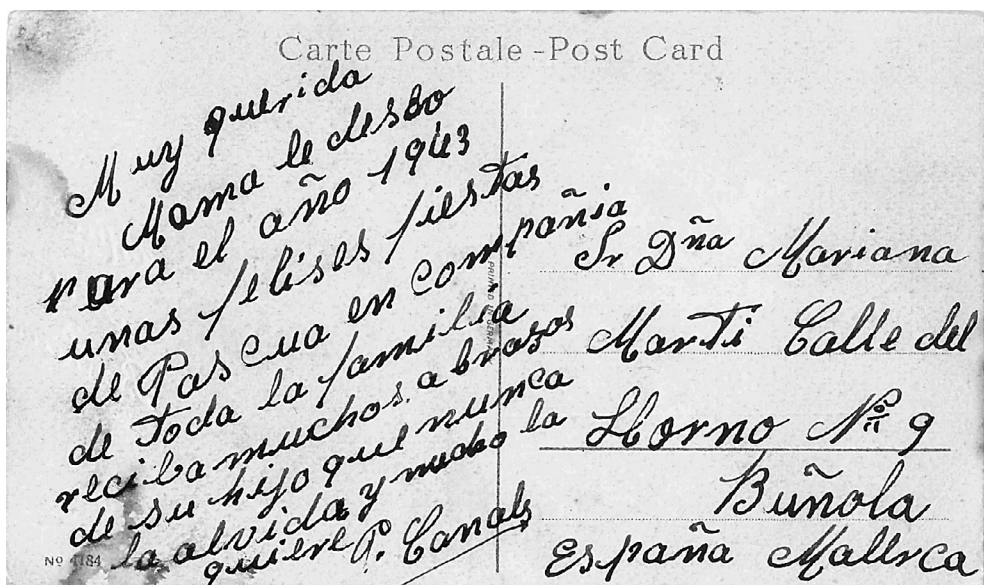 Carte Postale - Post Card
Muy querida
Mama le deseo
para el año 1943
unas felises fiestas
de Pascua en compañia
de toda la familia
reciba muchos abrasos
de su hijo que nunca
la alvida y mucho la
quiere P. Canals
Nº 4184
Sr Dña Mariana
Marti Calle del
Horno Nº 9
Buñola
España Mallrca